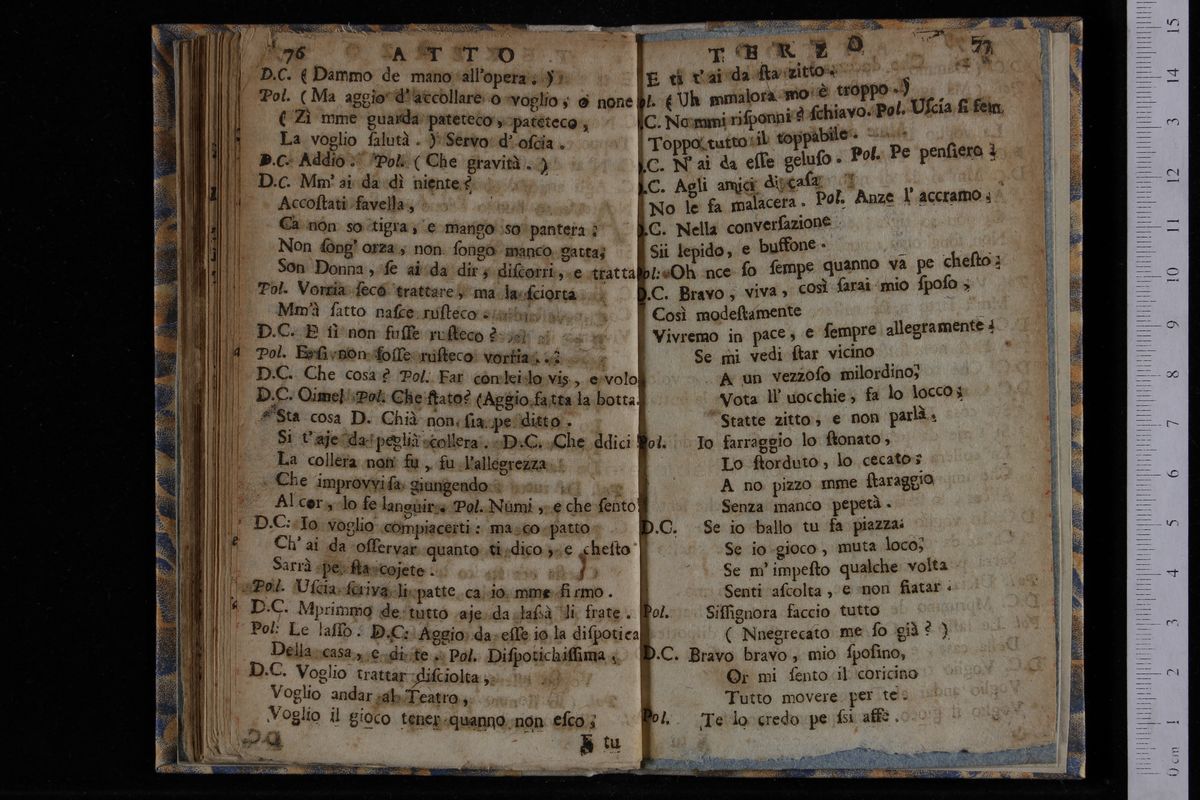 76 ATTO
D.C. ( Dammo de mano all'opera. )
Pol. ( Ma aggio d'accollare o voglio, o none
( Zì mme guarda pateteco, pateteco,
La voglio salutà. ) Servo d'oscia.
D.C. Addio. Pol. ( Che gravità. )
D.C. Mm'ai da dì niente?
Accostati favella,
Ca non so tigra, e mango so pantera;
Non song'orza, non songo manco gatta,
Son Donna, se ai da dir, discorri, e tratta
Pol. Vorria seco trattare, ma la sciorta
Mm'à fatto nasce rusteco.
D.C. E sì non fusse rusteco?
Pol. E si non fosse rusteco vorria...
D.C. Che cosa? Pol. Far con lei lo vis, e volo
D.C. Oimè! Pol. Che stato? (Aggio fatta la botta.
Sta cosa D. Chià non sia pe ditto.
Si t'aje da peglià collera. D.C. Che ddici
La collera non fu, fu l'allegrezza
Che improvvisa giungendo
Al cor, lo fe languir. Pol. Numi, e che sento!
D.C: Io voglio compiacerti: ma co patto
Ch'ai da osservar quanto ti dico, e chesto
Sarrà pe sta cojete.
Pol. Uscia scriva li patte ca io mme firmo.
D.C. Mprimmo de tutto aje da lassà li frate.
Pol: Le lasso. D.C: Aggio da esse io la dispotica
Della casa, e di te. Pol. Dispotichissima,
D.C. Voglio trattar disciolta,
Voglio andar al Teatro,
Voglio il gioco tener quanno non esco;
E tu
TERZO 77
E ti t'ai da sta zitto.
ol. ( Uh mmalora mo è troppo. )
.C. No mmi risponni? schiavo. Pol. Uscia si fem
Toppo tutto il toppabile.
.C. N'ai da esse geluso. Pol. Pe pensiero;
.C. Agli amici di casa
No le fa malacera. Pol. Anze l'accramo;
.C. Nella conversazione
Sii lepido, e buffone.
ol: Oh nce so sempe quanno và pe chesto;
D.C. Bravo, viva, così sarai mio sposo,
Così modestamente
Vivremo in pace, e sempre allegramente;
Se mi vedi star vicino
A un vezzoso milordino,
Vota ll'uocchie, fa lo locco;
Statte zitto, e non parlà,
Pol. Io farraggio lo stonato,
Lo storduto, lo cecato;
A no pizzo mme staraggio
Senza manco pepetà.
D.C. Se io ballo tu fa piazza:
Se io gioco, muta loco;
Se m'impesto qualche volta
Senti ascolta, e non fiatar.
Pol. Sissignora faccio tutto
( Nnegrecato me so già? )
D.C. Bravo bravo, mio sposino,
Or mi sento il coricino
Tutto movere per te.
Pol. Te lo credo pe ssi affè.